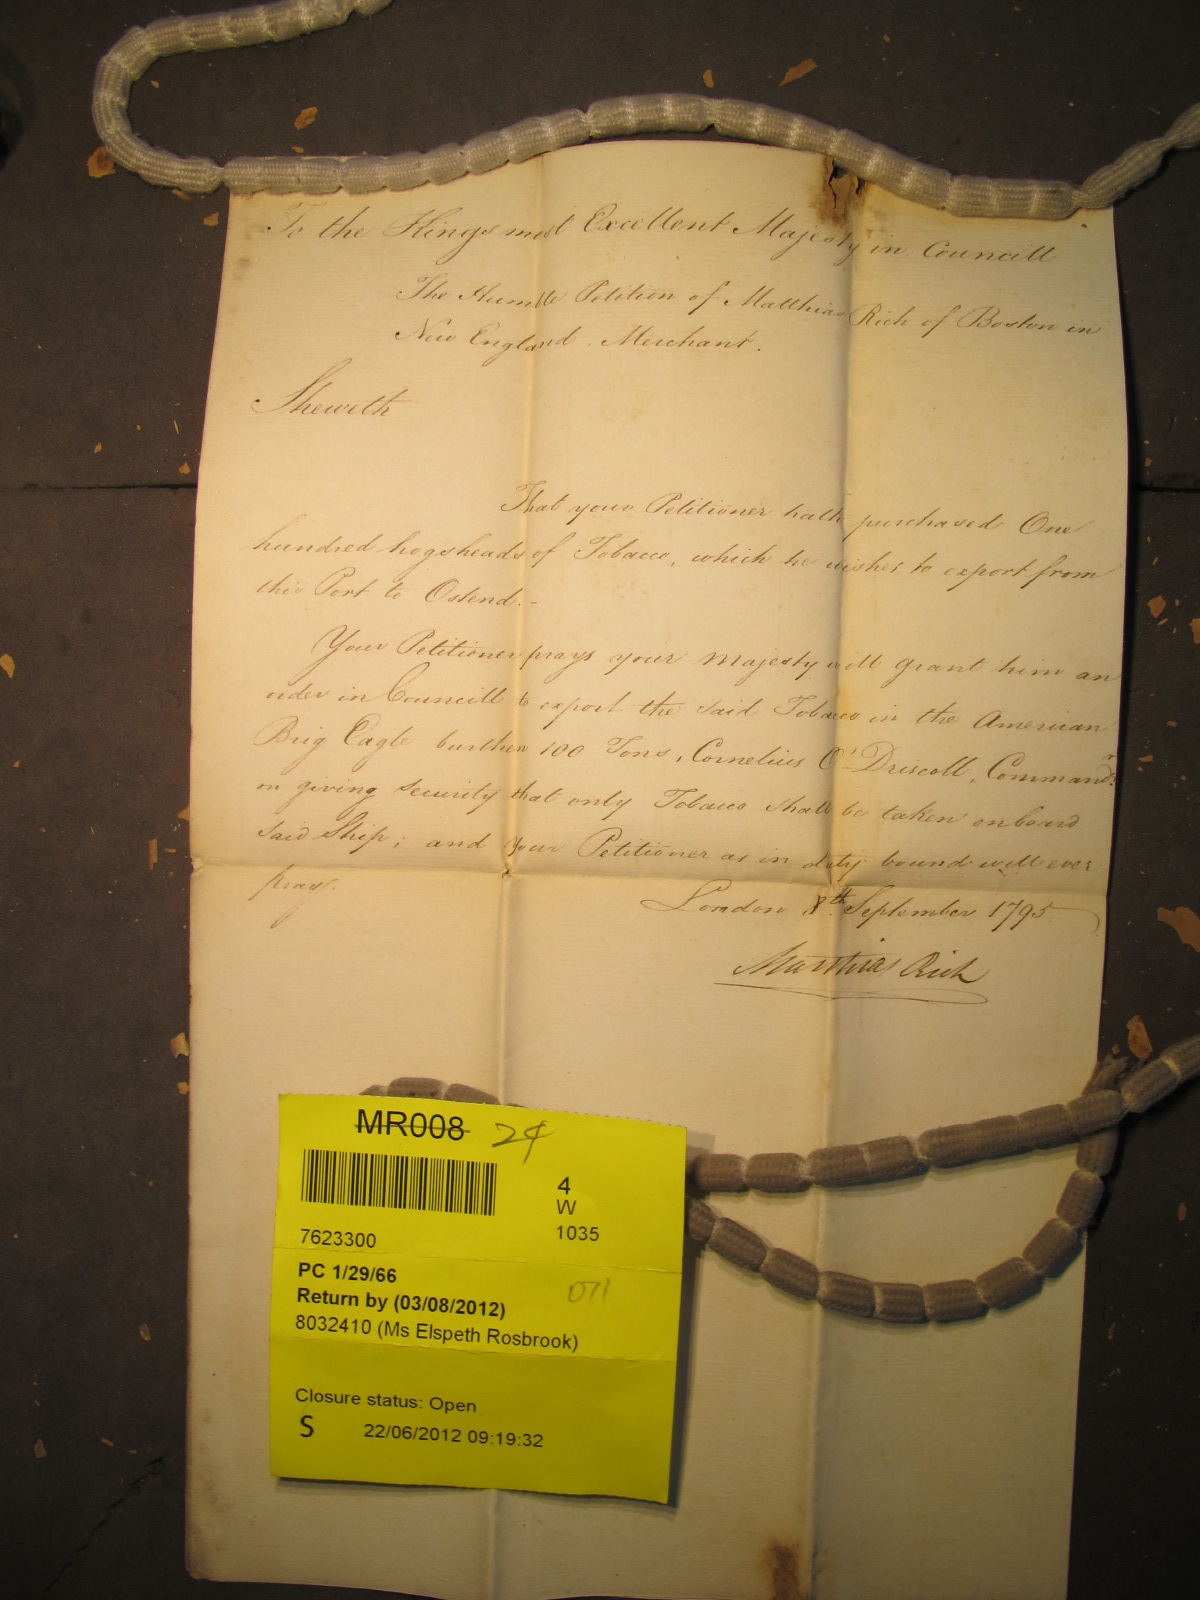 To the Kings most Excellent Majesty in Councill
The Humble Petition of Matthias Rich of Boston in
New England . Merchant .
Sheweth
That your Petitioner hath purchased One
hundred hogsheads of Tobacco, which he wishes to export from
this Port to Ostend.-
Your Petitioner prays your Majesty will grant him an
order in Councill to export the said Tobacco in the American
Brig Eagle burthen 100 Tons, Cornelius O'Driscoll, Commandr.
on giving security that only Tobacco shall be taken on board
said Ship; and your Petitioner as in duty bound will ever
pray.
London 8th. September 1795
Matthias Rich
MR008 24
4
W
1035
7623300
PC 1/29/66
071
Return by (03/08/2012)
8032410 (Ms Elspeth Rosbrook)
Closure status: Open
S 22/06/2012 09:19:32